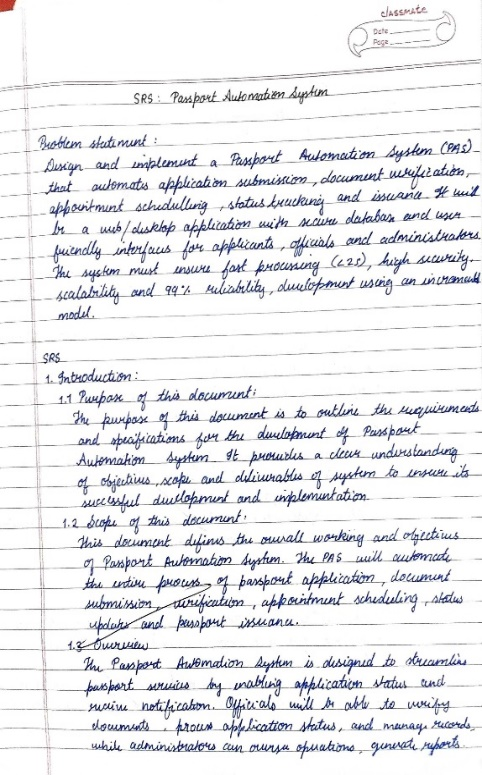 classmate
Date
Page
SRS : Passport Automation System
Problem statement :
Design and implement a Passport Automation System (PAS)
that automates application submission, document verification,
appointment schedulling, status tracking and issuance. It will
be a web/desktop application with secure database and user
friendly interfaces for applicants, officials and administrators.
The system must ensure fast processing (<2s), high security,
scalability and 99% reliability, development using an incremental
model.
SRS
1. Introduction :
1.1 Purpose of this document :
The purpose of this document is to outline the requirements
and specifications for the development of Passport
Automation System. It provides a clear understanding
of objectives, scope and deliverables of system to ensure its
successful development and implementation
1.2 Scope of this document :
This document defines the overall working and objectives
of Passport Automation System. The PAS will automate
the entire process of passport application, document
submission, verification, appointment scheduling, status
updates and passport issuance.
1.3 Overview
The Passport Automation System is designed to streamline
passport services by enabling application status and
receive notification. Officials will be able to verify
documents, process application status, and manage records,
while administrators can oversee operations, generate reports.